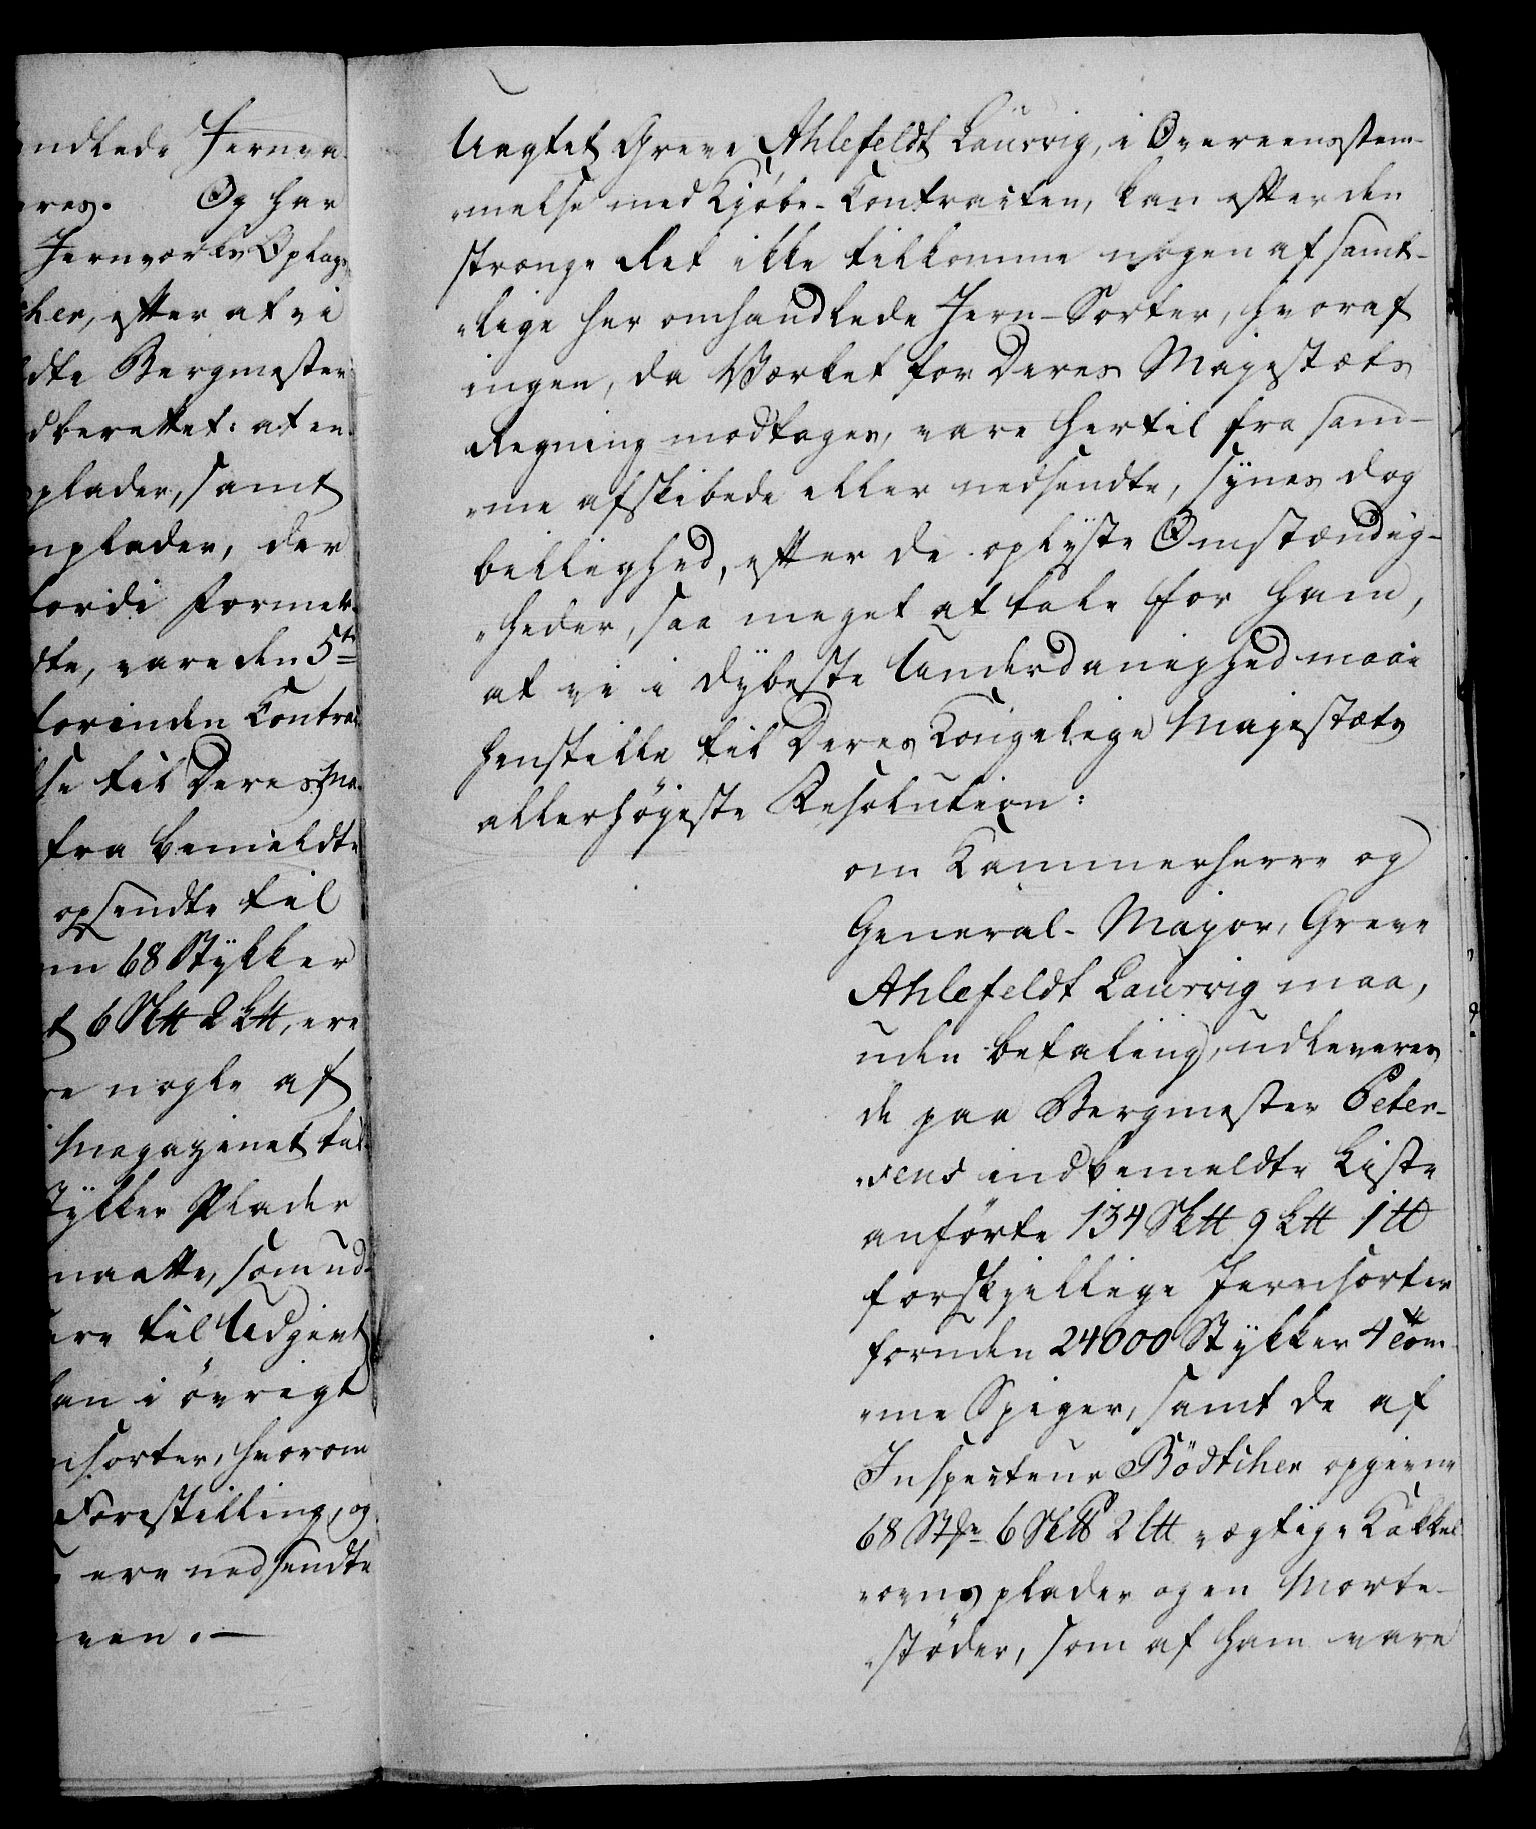 ndlede Jernva-
eres. Og har
Jernværks Oplags
cher, efter at vi
dte Bergmester
dberettet: at en
plader, samt
nplader, der
fordi Formek-
dte, vare den 5te
forinden Contrac
lse til Deres Ma-
fra bemeldte
opsendte til
m 68 Stykker
t 6 Sk℔ 2 L℔, ere
re nogle af
Magazinet tal-
Stykker Plader
maatte, som ud-
ere til Udgivt
an i övrigt
nsorter, hvorom
Forestilling, og
ere nedsendte
ven. —
Uagtet Greve Ahlefeldt Laurvig, i Overeensstem-
melse med Kjöbe-Contracten, kan efter den
strænge Ret ikke tilkomme nogen af samt-
lige her omhandlede Jern-Sorter, hvoraf
ingen, da Værket for Deres Majestæts
Regning modtoges, vare hertil fra sam-
me afskibede eller nedsendte, synes dog
billighed, efter de oplyste Omstændig-
heder, saa meget at tale for ham,
at vi i dybeste Underdanighed maae
henstille til Deres Kongelige Majestæts
allerhöjeste Resolution:
om Kammerherre og
General-Major, Greve
Ahlefeldt Laurvig maa,
uden betaling, udleveres
de paa Bergmester Peter-
sens indbemeldte Liste
anförte 134 Sk℔ 9 L℔ 1 ℔
forskjellige Jernsorter
foruden 24000 Stykker 4 tom-
me Spiger, samt de af
Inspecteur Bödtcher opgivne
68 Stkr 6 Sk℔ 2 L℔ vægtige Kakkel
ovns plader og en Morte-
stöder, som af ham vare